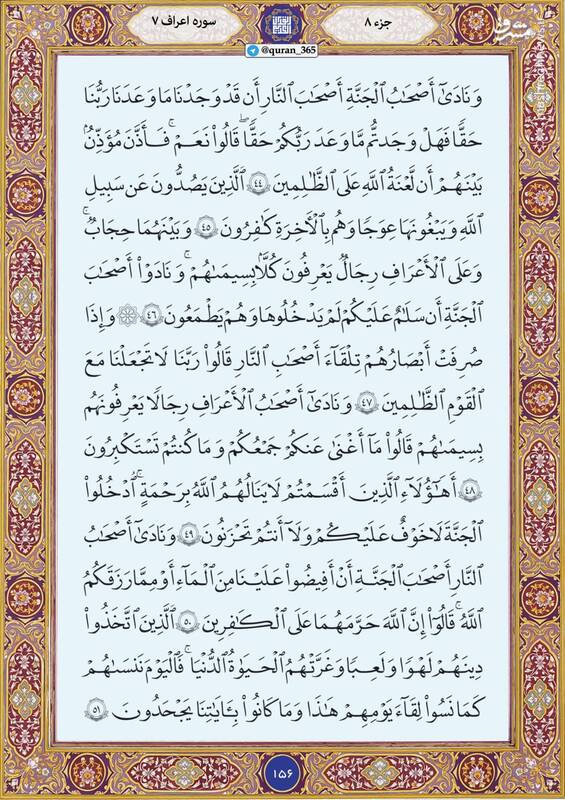 جزء ۸
سوره اعراف ۷
@quran_365
مشرق
وَنَادَىٰٓ أَصْحَٰبُ ٱلْجَنَّةِ أَصْحَٰبَ ٱلنَّارِ أَن قَدْ وَجَدْنَا مَا وَعَدَنَا رَبُّنَا
حَقًّا فَهَلْ وَجَدتُّم مَّا وَعَدَ رَبُّكُمْ حَقًّا ۖ قَالُوا۟ نَعَمْ ۚ فَأَذَّنَ مُؤَذِّنٌۢ
بَيْنَهُمْ أَن لَّعْنَةُ ٱللَّهِ عَلَى ٱلظَّٰلِمِينَ ٤٤ ٱلَّذِينَ يَصُدُّونَ عَن سَبِيلِ
ٱللَّهِ وَيَبْغُونَهَا عِوَجًا وَهُم بِٱلْءَاخِرَةِ كَٰفِرُونَ ٤٥ وَبَيْنَهُمَا حِجَابٌ ۚ
وَعَلَى ٱلْأَعْرَافِ رِجَالٌ يَعْرِفُونَ كُلًّۢا بِسِيمَىٰهُمْ ۚ وَنَادَوْا۟ أَصْحَٰبَ
ٱلْجَنَّةِ أَن سَلَٰمٌ عَلَيْكُمْ لَمْ يَدْخُلُوهَا وَهُمْ يَطْمَعُونَ ٤٦ ۞ وَإِذَا
صُرِفَتْ أَبْصَٰرُهُمْ تِلْقَآءَ أَصْحَٰبِ ٱلنَّارِ قَالُوا۟ رَبَّنَا لَا تَجْعَلْنَا مَعَ
ٱلْقَوْمِ ٱلظَّٰلِمِينَ ٤٧ وَنَادَىٰٓ أَصْحَٰبُ ٱلْأَعْرَافِ رِجَالًا يَعْرِفُونَهُم
بِسِيمَىٰهُمْ قَالُوا۟ مَآ أَغْنَىٰ عَنكُمْ جَمْعُكُمْ وَمَا كُنتُمْ تَسْتَكْبِرُونَ
٤٨ أَهَٰٓؤُلَآءِ ٱلَّذِينَ أَقْسَمْتُمْ لَا يَنَالُهُمُ ٱللَّهُ بِرَحْمَةٍ ۚ ٱدْخُلُوا۟
ٱلْجَنَّةَ لَا خَوْفٌ عَلَيْكُمْ وَلَآ أَنتُمْ تَحْزَنُونَ ٤٩ وَنَادَىٰٓ أَصْحَٰبُ
ٱلنَّارِ أَصْحَٰبَ ٱلْجَنَّةِ أَنْ أَفِيضُوا۟ عَلَيْنَا مِنَ ٱلْمَآءِ أَوْ مِمَّا رَزَقَكُمُ
ٱللَّهُ ۚ قَالُوٓا۟ إِنَّ ٱللَّهَ حَرَّمَهُمَا عَلَى ٱلْكَٰفِرِينَ ٥٠ ٱلَّذِينَ ٱتَّخَذُوا۟
دِينَهُمْ لَهْوًا وَلَعِبًا وَغَرَّتْهُمُ ٱلْحَيَوٰةُ ٱلدُّنْيَا ۚ فَٱلْيَوْمَ نَنسَىٰهُمْ
كَمَا نَسُوا۟ لِقَآءَ يَوْمِهِمْ هَٰذَا وَمَا كَانُوا۟ بِـَٔايَٰتِنَا يَجْحَدُونَ ٥١
۱۵۶